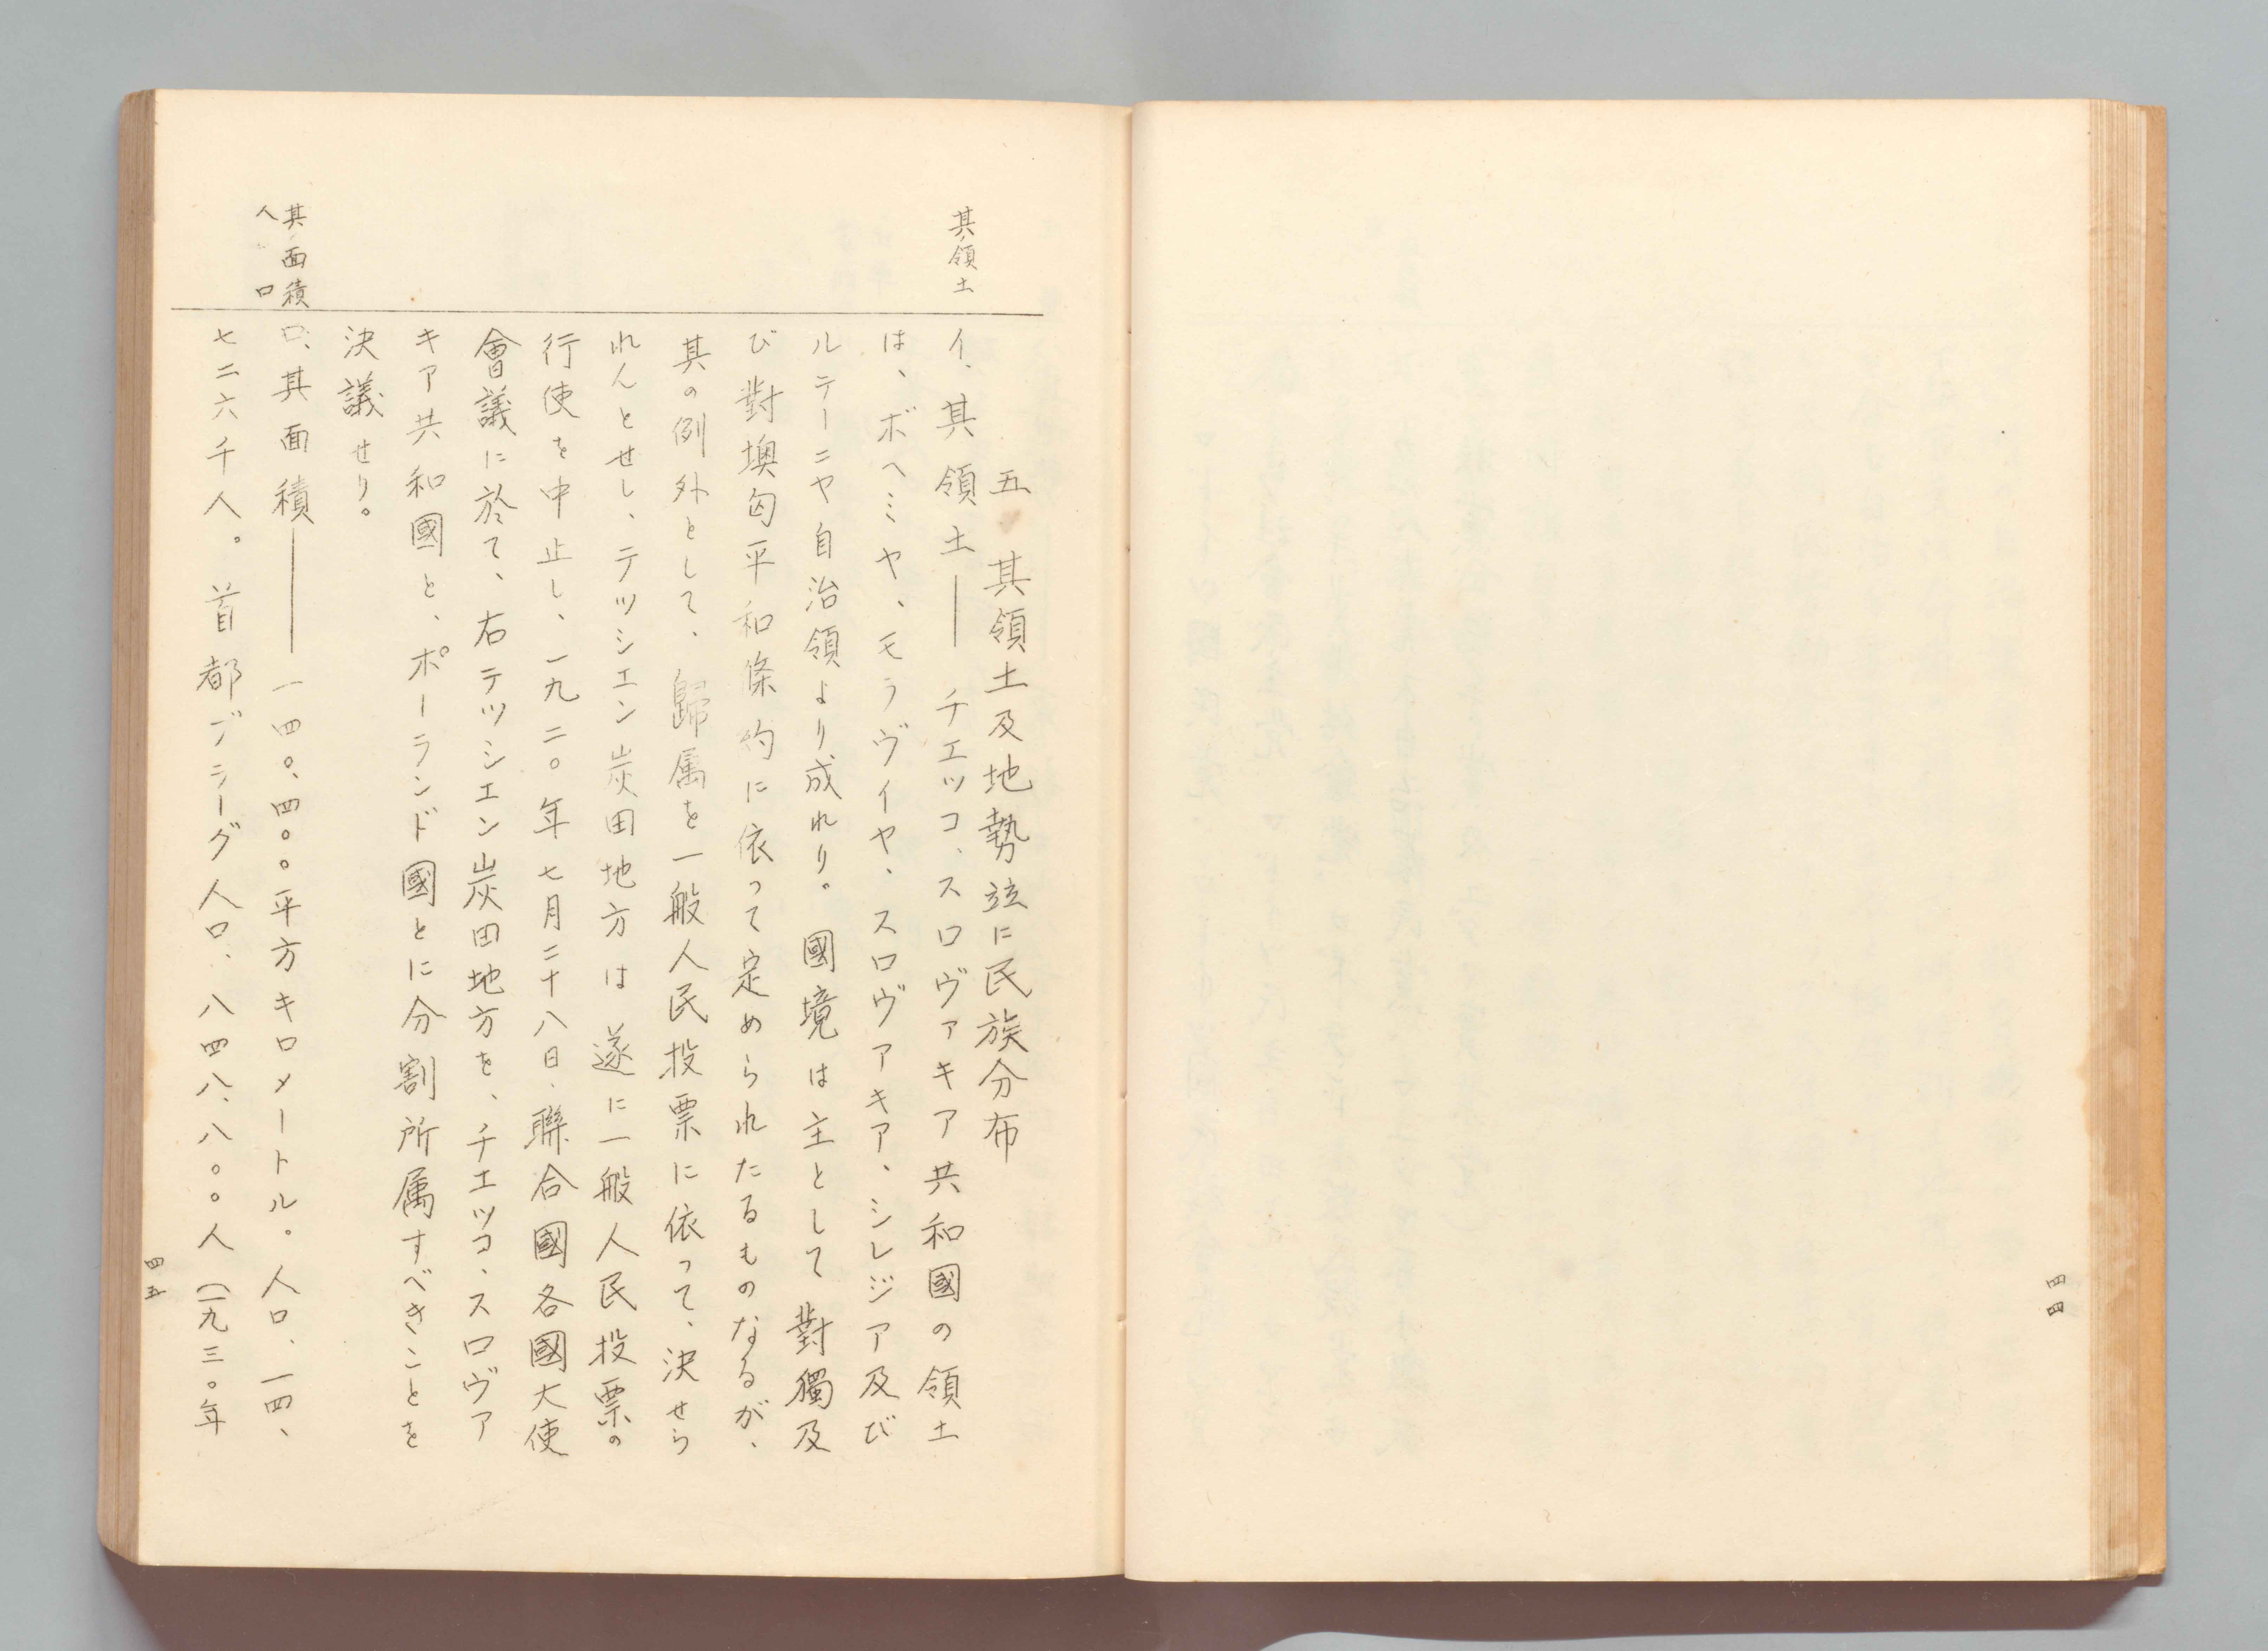 四四
五 其領土及地勢竝に民族分布
其ノ領土
イ、其領土――チエッコ、スロヴァキア共和國の領土
は、ボヘミヤ、モラヴイヤ、スロヴァキア、シレジア及び
ルテーニヤ自治領より成れり。國境は主として對獨及
び對墺匈平和條約に依って定められたるものなるが、
其の例外として、歸属を一般人民投票に依って、決せら
れんとせし、テッシエン炭田地方は遂に一般人民投票の
行使を中止し、一九二〇年七月二十八日、聯合國各國大使
會議に於て、右テッシエン炭田地方を、チエッコ、スロヴァ
キア共和國と、ポーランド國とに分割所属すべきことを
決議せり。
其ノ面積
人口
ロ、其面積――一四〇、四〇〇平方キロメートル。人口、一四、
七二六千人。首都プラーグ人口、八四八、八〇〇人(一九三〇年
四五